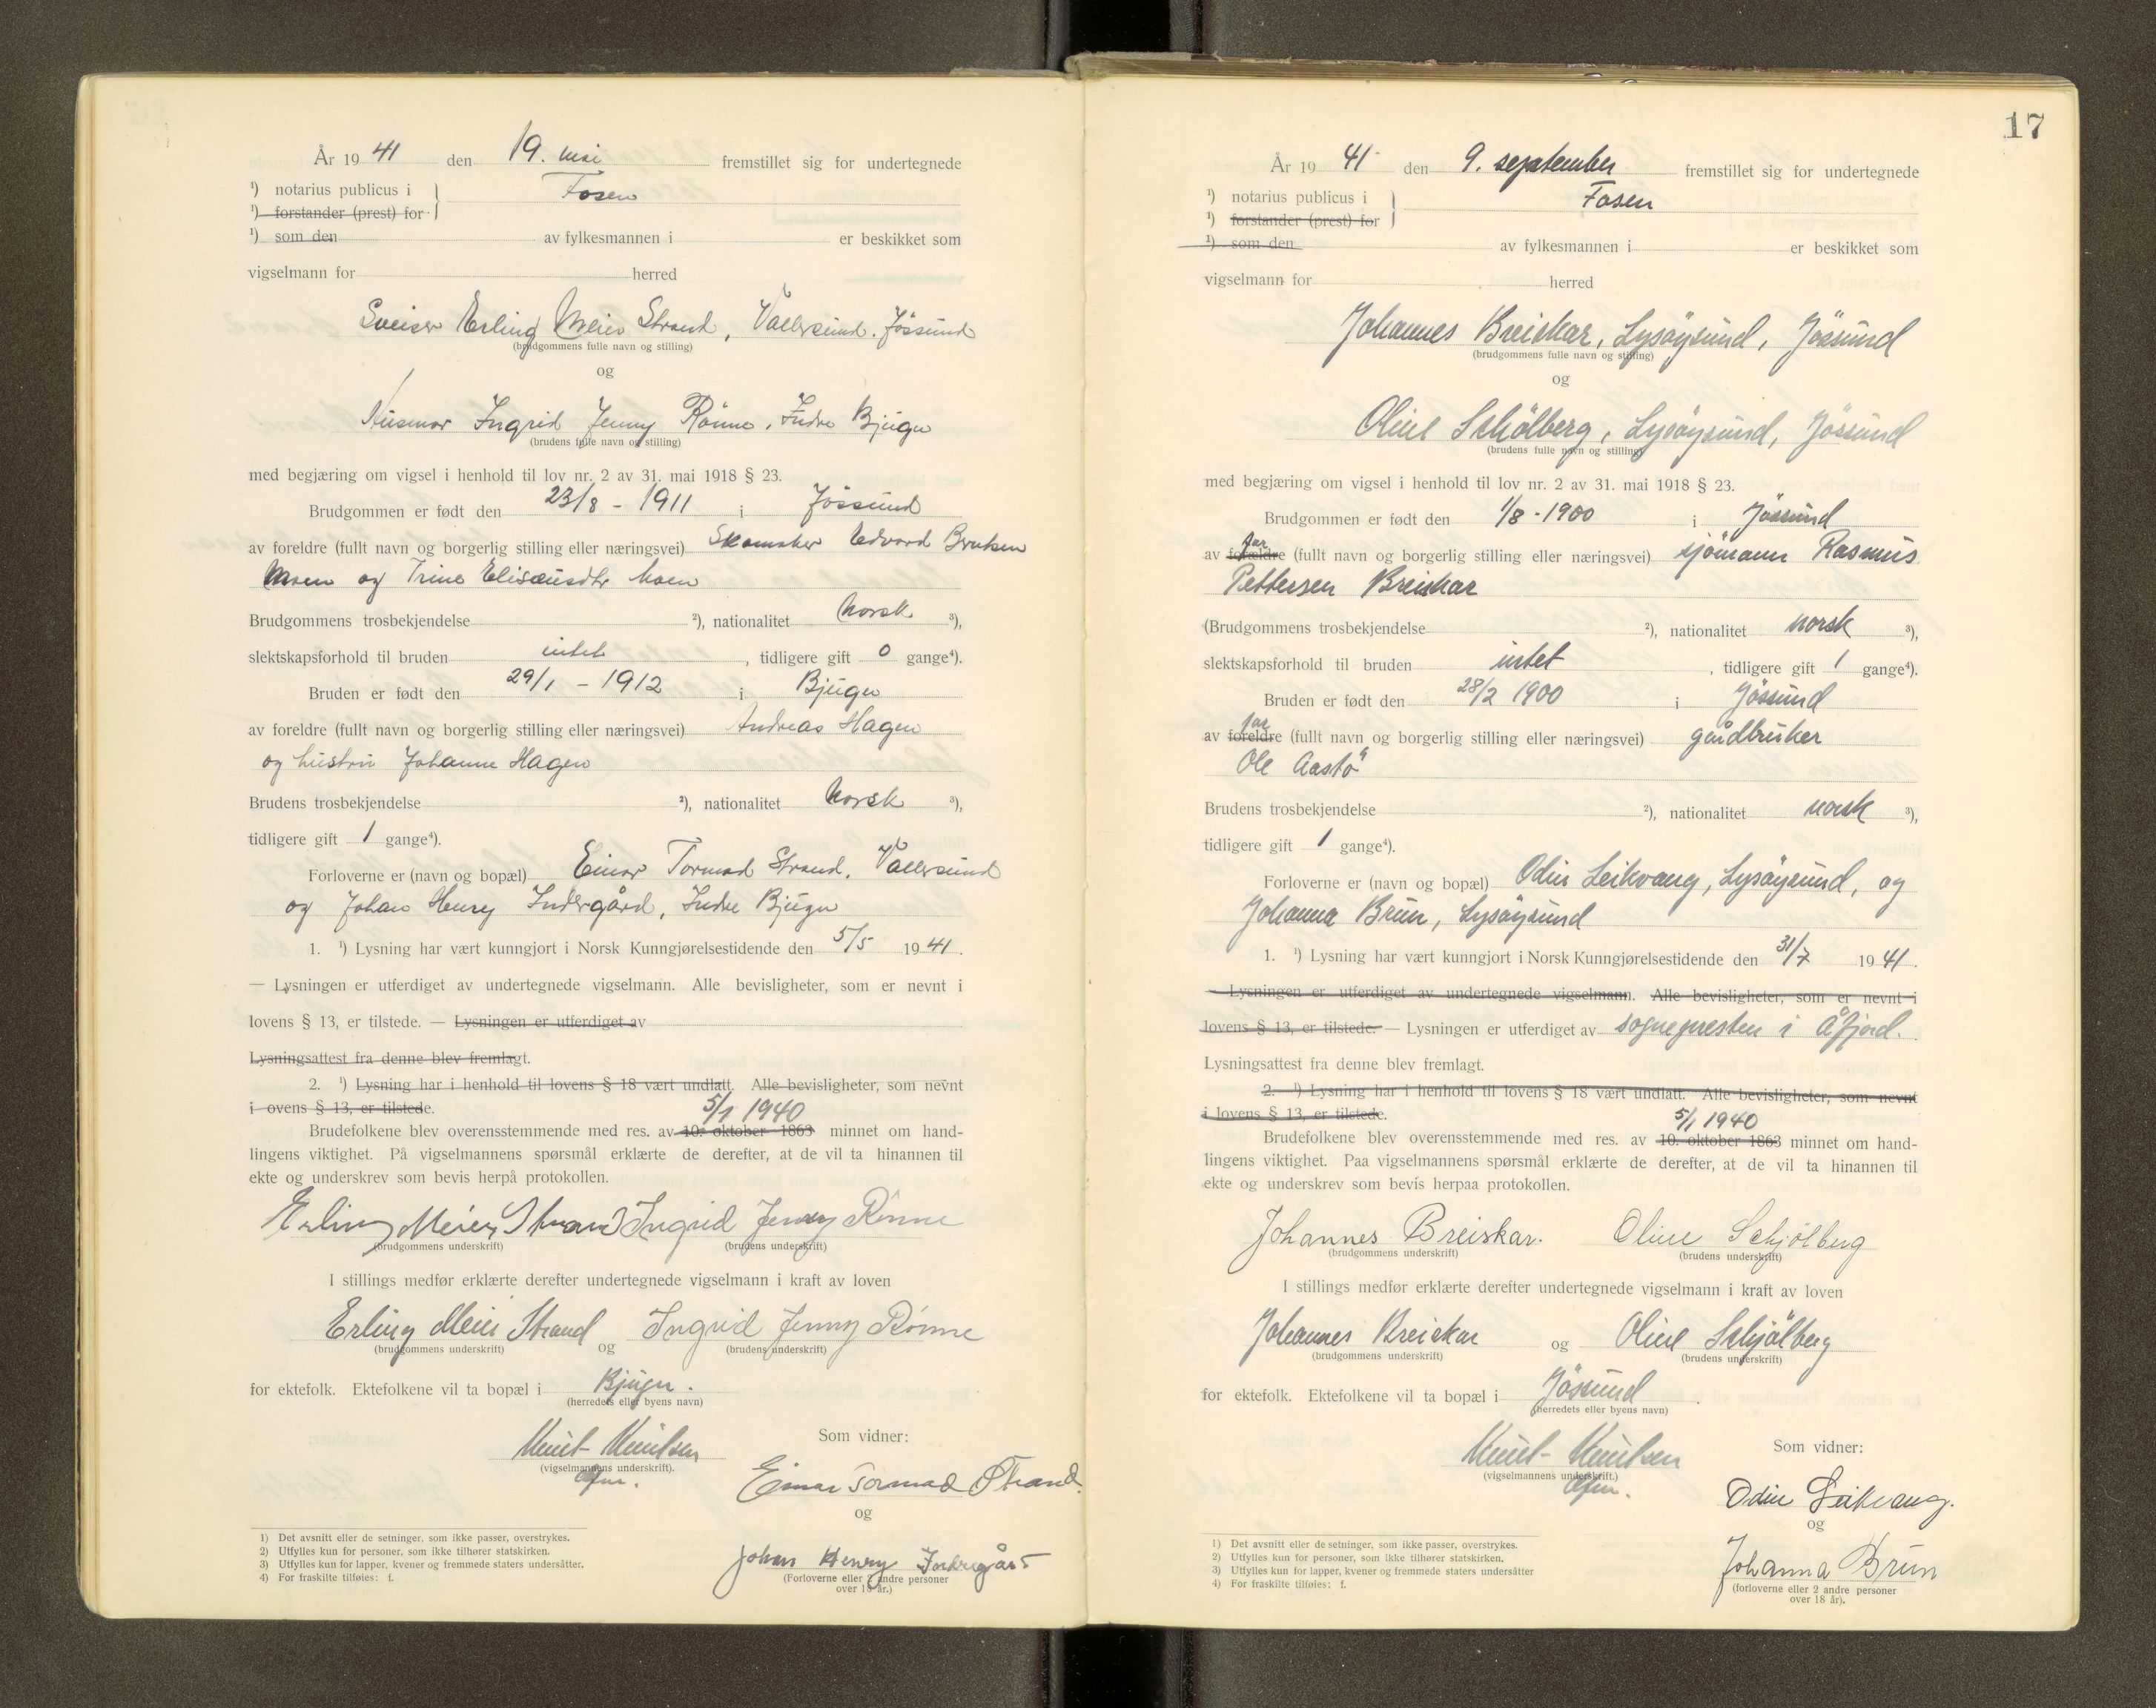 År 19 41 den 19. mai fremstillet sig for undertegnede
¹) notarius publicus i } Fosen
¹) forstander (prest) for
¹) som den av fylkesmannen i er beskikket som
vigselmann for herred
Sveiser Erling Meier Strand, Vallersund. Jössund
(brudgommens fulle navn og stilling)
og
Husmor Ingrid Jenny Rönne, Indre Bjugn
(brudens fulle navn og stilling)
med begjæring om vigsel i henhold til lov nr. 2 av 31. mai 1918 § 23.
Brudgommen er født den 23/8 - 1911 i Jössund
av foreldre (fullt navn og borgerlig stilling eller næringsvei) Skomaker Edvard
Moen og Trine Elisæusdtr Moen
Brudgommens trosbekjendelse ²), nationalitet Norsk ³),
slektskapsforhold til bruden intet, tidligere gift 0 gange⁴).
Bruden er født den 29/1 - 1912 i Bjugn
av foreldre (fullt navn og borgerlig stilling eller næringsvei) Andreas Hagen
og hustru Johanne Hagen
Brudens trosbekjendelse ²), nationalitet Norsk ³),
tidligere gift 1 gange⁴).
Forloverne er (navn og bopæl) Einar Tormod Strand, Vallersund
og Johan Henry Indergård, Indre Bjugn
1. ¹) Lysning har vært kunngjort i Norsk Kunngjørelsestidende den 5/5 19 41.
— Lysningen er utferdiget av undertegnede vigselmann. Alle bevisligheter, som er nevnt i
lovens § 13, er tilstede. — Lysningen er utferdiget av
Lysningsattest fra denne blev fremlagt.
2. ¹) Lysning har i henhold til lovens § 18 vært undlatt. Alle bevisligheter, som nevnt
i ovens § 13, er tilstede.
5/1 1940
Brudefolkene blev overensstemmende med res. av 10. oktober 1863 minnet om hand-
lingens viktighet. På vigselmannens spørsmål erklærte de derefter, at de vil ta hinannen til
ekte og underskrev som bevis herpå protokollen.
Erling Meier Strand Ingrid Jenny Rönne
(brudgommens underskrift) (brudens underskrift)
I stillings medfør erklærte derefter undertegnede vigselmann i kraft av loven
Erling Meier Strand og Ingrid Jenny Rönne
(brudgommens underskrift) (brudens underskrift)
for ektefolk. Ektefolkene vil ta bopæl i Bjugn.
(herredets eller byens navn)
Knut Knutsen
(vigselmannens underskrift).
Som vidner:
Einar Tormod Strand.
og
Johan Henry Indergård
(Forloverne eller 2 andre personer
over 18 år.)
1) Det avsnitt eller de setninger, som ikke passer, overstrykes.
2) Utfylles kun for personer, som ikke tilhører statskirken.
3) Utfylles kun for lapper, kvener og fremmede staters undersåtter.
4) For fraskilte tilføies: f.
17
År 19 41 den 9. september fremstillet sig for undertegnede
¹) notarius publicus i } Fosen
¹) forstander (prest) for
¹) som den av fylkesmannen i er beskikket som
vigselmann for herred
Johannes Breiskar, Lysöysund, Jössund
(brudgommens fulle navn og stilling)
og
Oline Schölberg, Lysöysund, Jössund
(brudens fulle navn og stilling)
med begjæring om vigsel i henhold til lov nr. 2 av 31. mai 1918 § 23.
Brudgommen er født den 1/8 - 1900 i Jössund
far
av foreldre (fullt navn og borgerlig stilling eller næringsvei) sjömann Rasmus
Pettersen Breiskar
(Brudgommens trosbekjendelse ²), nationalitet norsk ³),
slektskapsforhold til bruden intet, tidligere gift 1 gange⁴).
Bruden er født den 28/2 1900 i Jössund
far
av foreldre (fullt navn og borgerlig stilling eller næringsvei) gårdbruker
Ole Aastö
Brudens trosbekjendelse ²), nationalitet norsk ³),
tidligere gift 1 gange⁴).
Forloverne er (navn og bopæl) Odin Leikvang, Lysöysund, og
Johanna Brun, Lysöysund
1. ¹) Lysning har vært kunngjort i Norsk Kunngjørelsestidende den 31/7 19 41.
— Lysningen er utferdiget av undertegnede vigselmann. Alle bevisligheter, som er nevnt i
lovens § 13, er tilstede. — Lysningen er utferdiget av sognepresten i Åfjord.
Lysningsattest fra denne blev fremlagt.
2. ¹) Lysning har i henhold til lovens § 18 vært undlatt. Alle bevisligheter, som nevnt
i lovens § 13, er tilstede.
5/1 1940
Brudefolkene blev overensstemmende med res. av 10. oktober 1863 minnet om hand-
lingens viktighet. Paa vigselmannens spørsmål erklærte de derefter, at de vil ta hinannen til
ekte og underskrev som bevis herpaa protokollen.
Johannes Breiskar. Oline Schjölberg
(brudgommens underskrift) (brudens underskrift)
I stillings medfør erklærte derefter undertegnede vigselmann i kraft av loven
Johannes Breiskar og Oline Schjölberg
(brudgommens underskrift) (brudens underskrift)
for ektefolk. Ektefolkene vil ta bopæl i Jössund.
(herredets eller byens navn)
Knut Knutsen
(vigselmannens underskrift.)
Som vidner:
Odin Leikvang.
og
Johanna Brun
(forloverne eller 2 andre personer
over 18 år).
1) Det avsnitt eller de setninger, som ikke passer, overstrykes.
2) Utfylles kun for personer, som ikke tilhører statskirken.
3) Utfylles kun for lapper, kvener og fremmede staters undersåtter
4) For fraskilte tilføies: f.